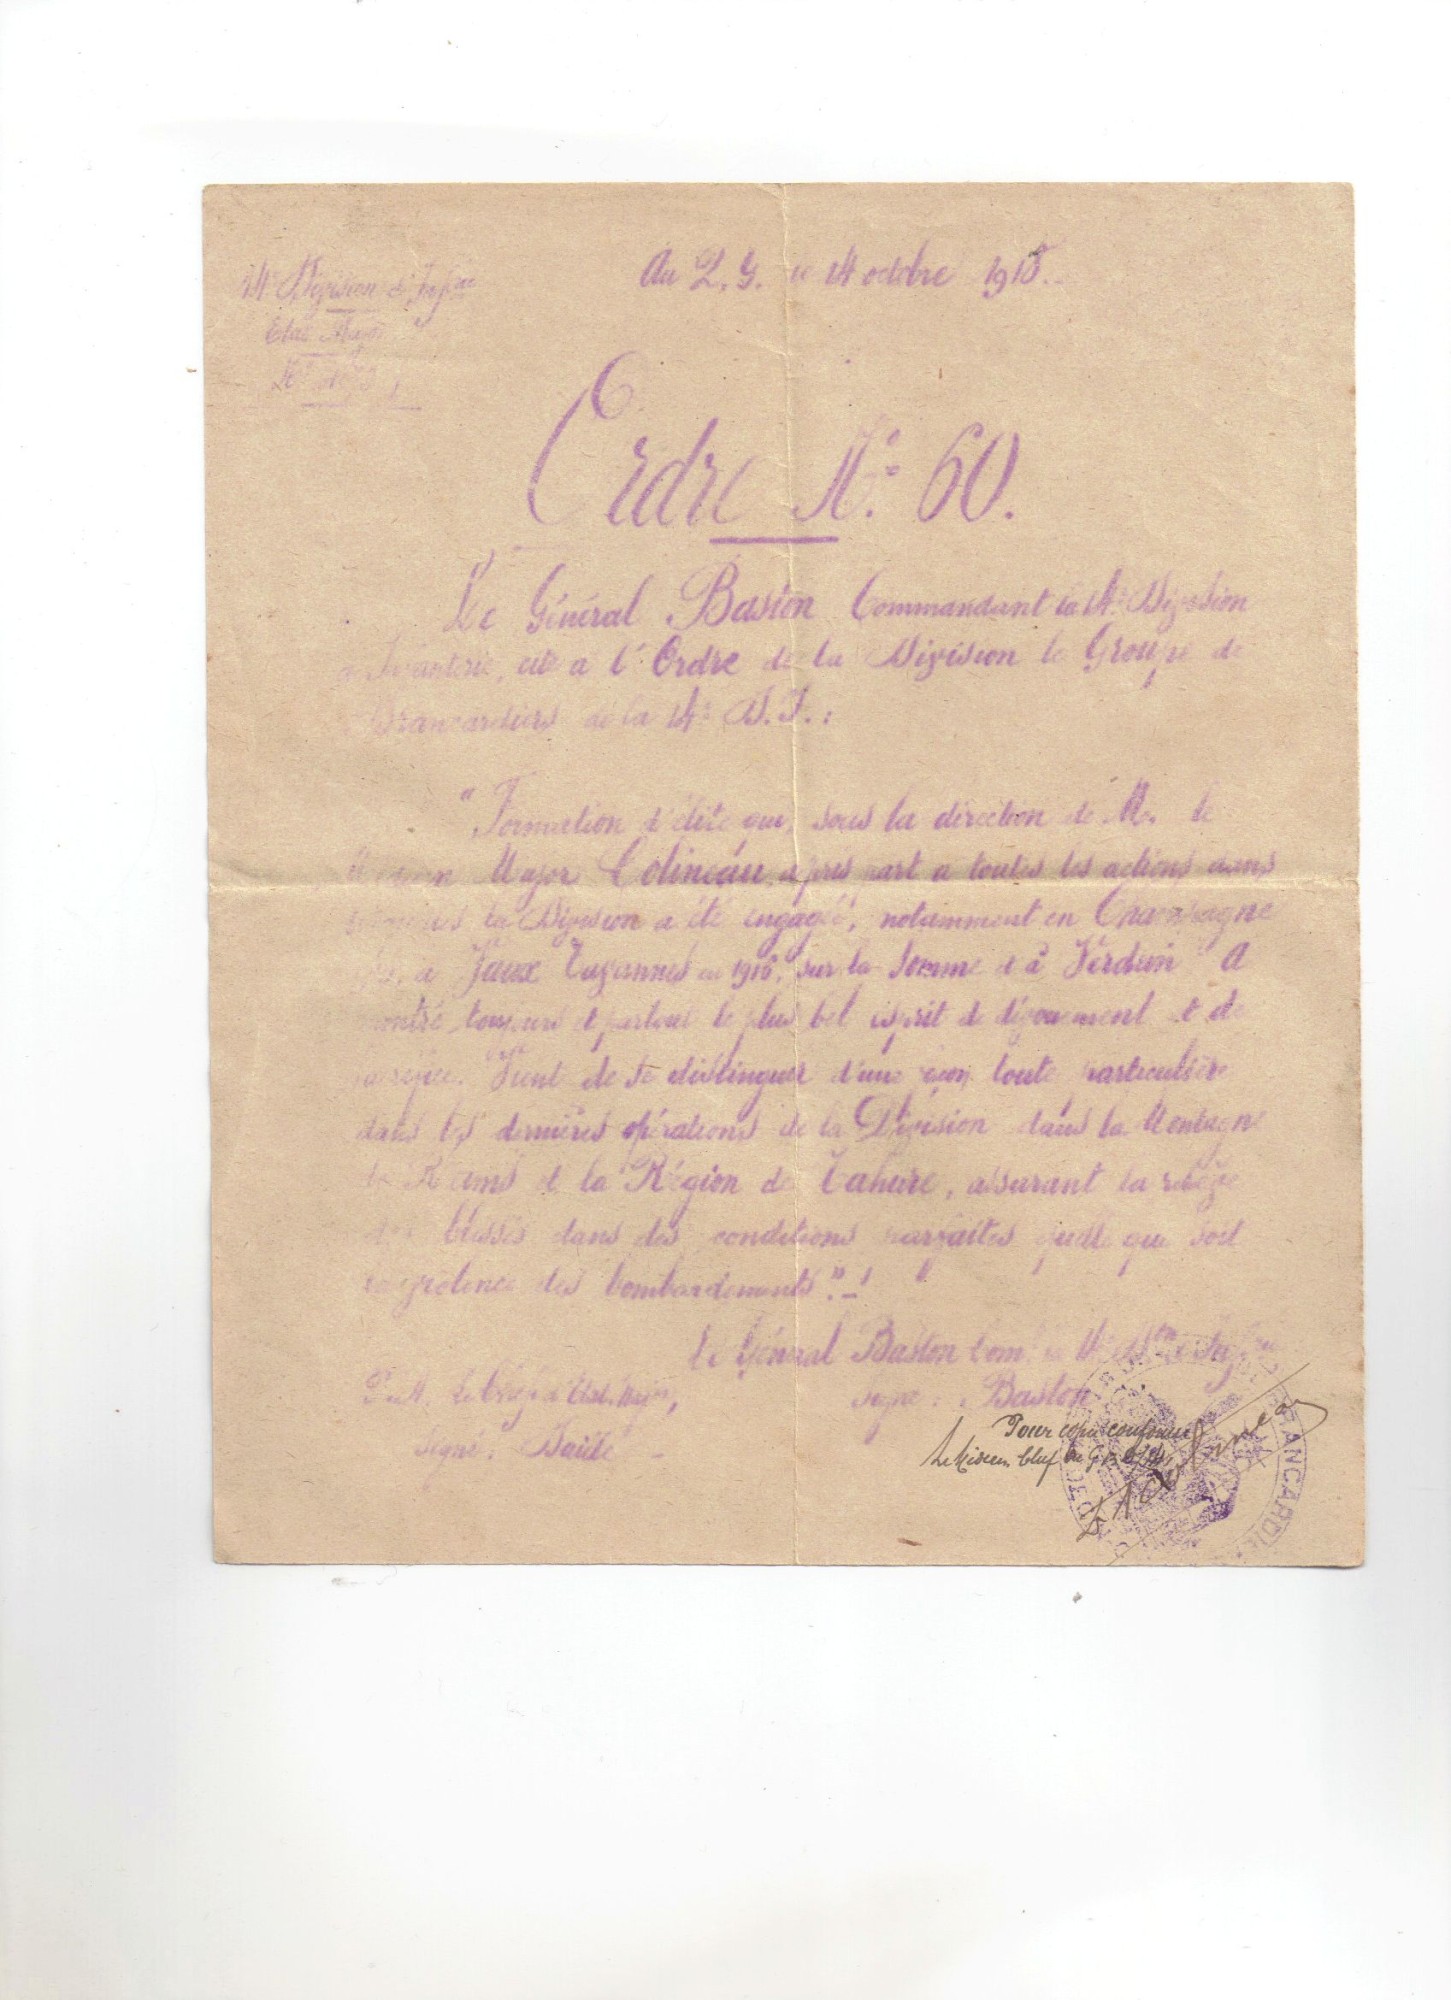 14e Division d'Infie
Etat Major
Au Q. G. le 14 octobre 1918.
Ordre No. 60.
Le Général Baston Commandant la 14e Division
d'Infanterie, cite à l'Ordre de la Division le Groupe de
Brancardiers de la 14e D.I. :
"Formation d'élite qui, sous la direction de Mr. le
Médecin Major Colineau, a pris part à toutes les actions dans
lesquelles la Division a été engagée, notamment en Champagne
à Vaux Tavannes en 1916, sur la Somme et à Verdun. A
montré toujours et partout le plus bel esprit de dévouement et de
sacrifice. Vient de se distinguer d'une façon toute particulière
dans les dernières opérations de la Division dans la Montagne
de Reims et la Région de Tahure, assurant la relève
des blessés dans des conditions parfaites quelle que soit
la violence des bombardements."
Le Général Baston Comt la 14e Don d'Infie
P.A. Le Chef d'Etat-Major,
Signé : Baston
Signé :
Pour copie conforme
Le Médecin Chef du G.B.D/14
Colineau
BRANCARDIERS